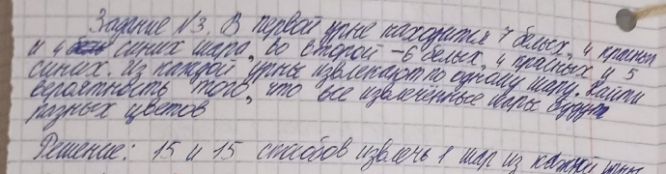 Задание №3. В первой урне находится 7 белых, 4 красных
и 4 синих шара, во второй – 6 белых, 4 красных и 5
синих. Из каждой урны извлекают по одному шару. Найти
вероятность того, что все извлечённые шары будут
разных цветов
Решение: 15 и 15 способов извлечь 1 шар из каждой урны